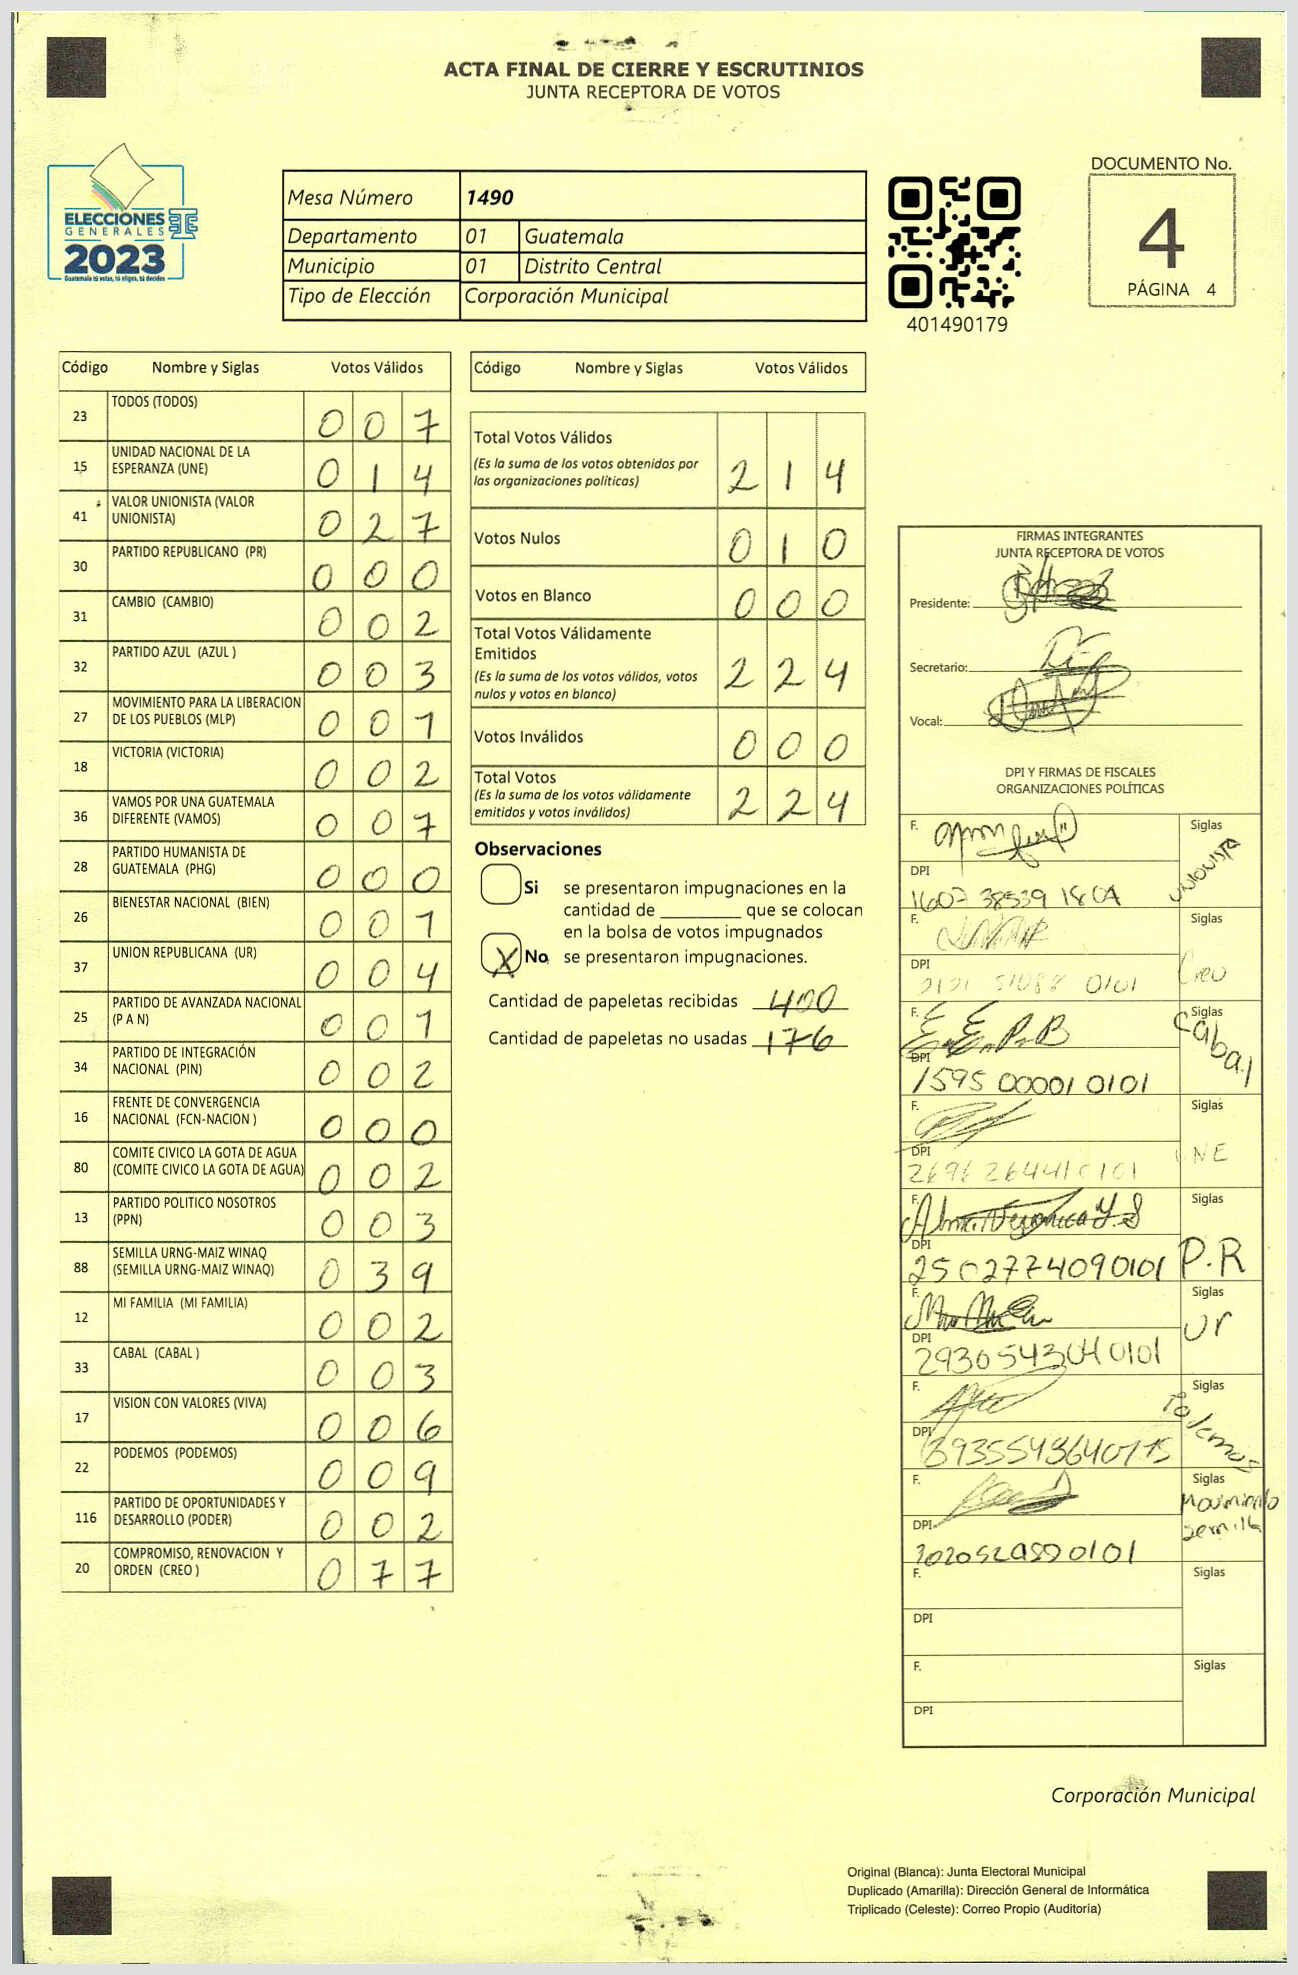 ACTA FINAL DE CIERRE Y ESCRUTINIOS
JUNTA RECEPTORA DE VOTOS
ELECCIONES
GENERALES
2023
Guatemala tú votas, tú eliges, tú decides
Mesa Número 1490
Departamento 01 Guatemala
Municipio 01 Distrito Central
Tipo de Elección Corporación Municipal
401490179
DOCUMENTO No.
4
PÁGINA 4
Código Nombre y Siglas Votos Válidos
23 TODOS (TODOS) 0 0 7
15 UNIDAD NACIONAL DE LA ESPERANZA (UNE) 0 1 4
41 VALOR UNIONISTA (VALOR UNIONISTA) 0 2 7
30 PARTIDO REPUBLICANO (PR) 0 0 0
31 CAMBIO (CAMBIO) 0 0 2
32 PARTIDO AZUL (AZUL ) 0 0 3
27 MOVIMIENTO PARA LA LIBERACION DE LOS PUEBLOS (MLP) 0 0 1
18 VICTORIA (VICTORIA) 0 0 2
36 VAMOS POR UNA GUATEMALA DIFERENTE (VAMOS) 0 0 7
28 PARTIDO HUMANISTA DE GUATEMALA (PHG) 0 0 0
26 BIENESTAR NACIONAL (BIEN) 0 0 1
37 UNION REPUBLICANA (UR) 0 0 4
25 PARTIDO DE AVANZADA NACIONAL (P A N) 0 0 1
34 PARTIDO DE INTEGRACIÓN NACIONAL (PIN) 0 0 2
16 FRENTE DE CONVERGENCIA NACIONAL (FCN-NACION ) 0 0 0
80 COMITE CIVICO LA GOTA DE AGUA (COMITE CIVICO LA GOTA DE AGUA) 0 0 2
13 PARTIDO POLITICO NOSOTROS (PPN) 0 0 3
88 SEMILLA URNG-MAIZ WINAQ (SEMILLA URNG-MAIZ WINAQ) 0 3 9
12 MI FAMILIA (MI FAMILIA) 0 0 2
33 CABAL (CABAL ) 0 0 3
17 VISION CON VALORES (VIVA) 0 0 6
22 PODEMOS (PODEMOS) 0 0 9
116 PARTIDO DE OPORTUNIDADES Y DESARROLLO (PODER) 0 0 2
20 COMPROMISO, RENOVACION Y ORDEN (CREO ) 0 7 7
Código Nombre y Siglas Votos Válidos
Total Votos Válidos 2 1 4
(Es la suma de los votos obtenidos por
las organizaciones políticas)
Votos Nulos 0 1 0
Votos en Blanco 0 0 0
Total Votos Válidamente
Emitidos 2 2 4
(Es la suma de los votos válidos, votos
nulos y votos en blanco)
Votos Inválidos 0 0 0
Total Votos 2 2 4
(Es la suma de los votos válidamente
emitidos y votos inválidos)
Observaciones
Si se presentaron impugnaciones en la
cantidad de ________ que se colocan
en la bolsa de votos impugnados
X No se presentaron impugnaciones.
Cantidad de papeletas recibidas 400
Cantidad de papeletas no usadas 176
FIRMAS INTEGRANTES
JUNTA RECEPTORA DE VOTOS
Presidente:
Secretario:
Vocal:
DPI Y FIRMAS DE FISCALES
ORGANIZACIONES POLÍTICAS
F. Siglas
UNIONISTA
DPI
1607 38539 1804
F. Siglas
Creo
DPI
0101
F. Siglas
E. E. P. B
Cabal
DPI
1595 00001 0101
F. Siglas
UNE
DPI
2696 26441 0101
F. Siglas
P.R
DPI
2502774090101
F. Siglas
Ur
DPI
2930543040101
F. Siglas
Podemos
DPI
F. Siglas
Movimiento
semilla
DPI
F. Siglas
DPI
F. Siglas
DPI
Corporación Municipal
Original (Blanca): Junta Electoral Municipal
Duplicado (Amarilla): Dirección General de Informática
Triplicado (Celeste): Correo Propio (Auditoría)